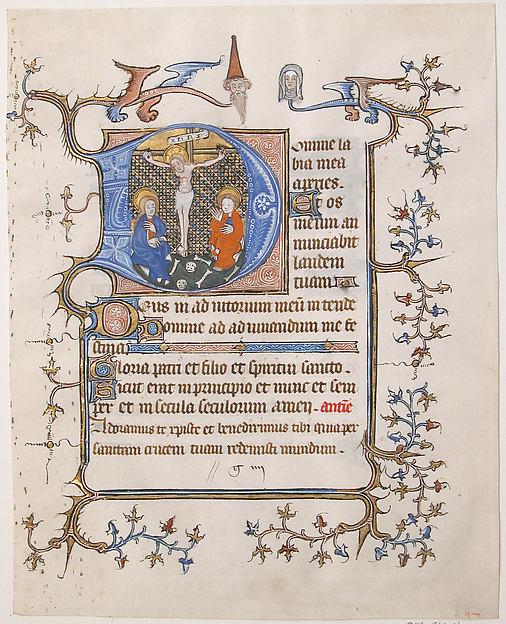 omine la
bia mea
aperies.
Et os
meum an
nunciabit
laudem
tuam
Deus in adiutorium meū intende
Domine ad adiuvandum me fe
stina
Gloria patri et filio et spiritui sancto.
Sicut erat in principio et nunc et sem
per et in secula seculorum amen. antiē
Adoramus te xpiste et benedicimus tibi quia per
sanctam crucem tuam redemisti mundum.